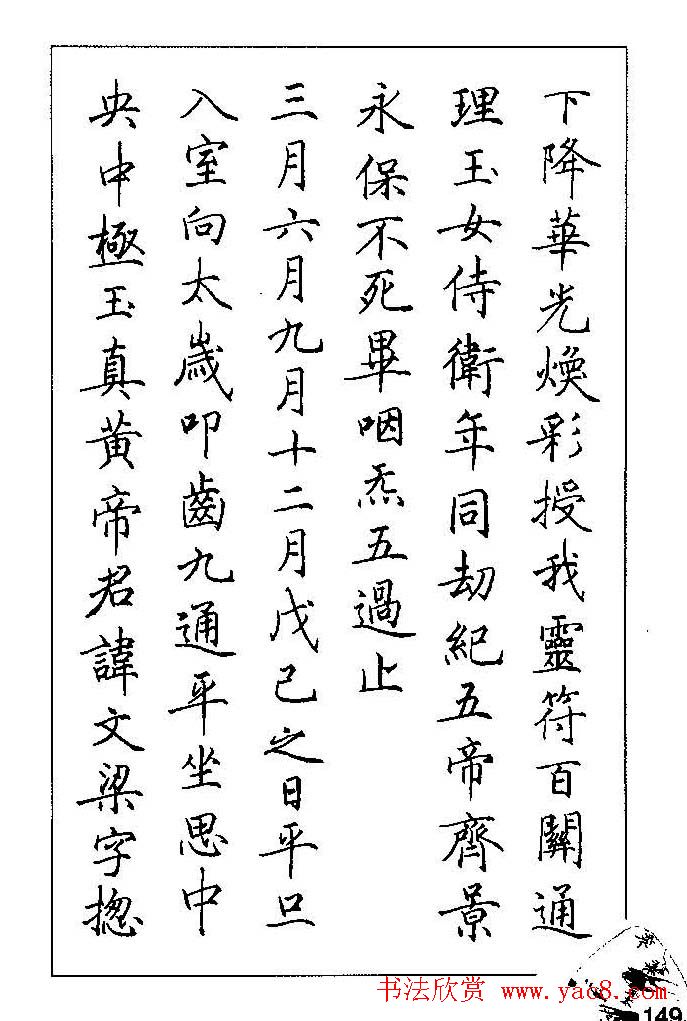 下降華光煥彩授我靈符百關通
理玉女侍衛年同劫紀五帝齊景
永保不死畢咽炁五過止
三月六月九月十二月戊己之日平旦
入室向太歲叩齒九通平坐思中
央中極玉真黃帝君諱文梁字揔
书法欣赏 www.yac8.com
149